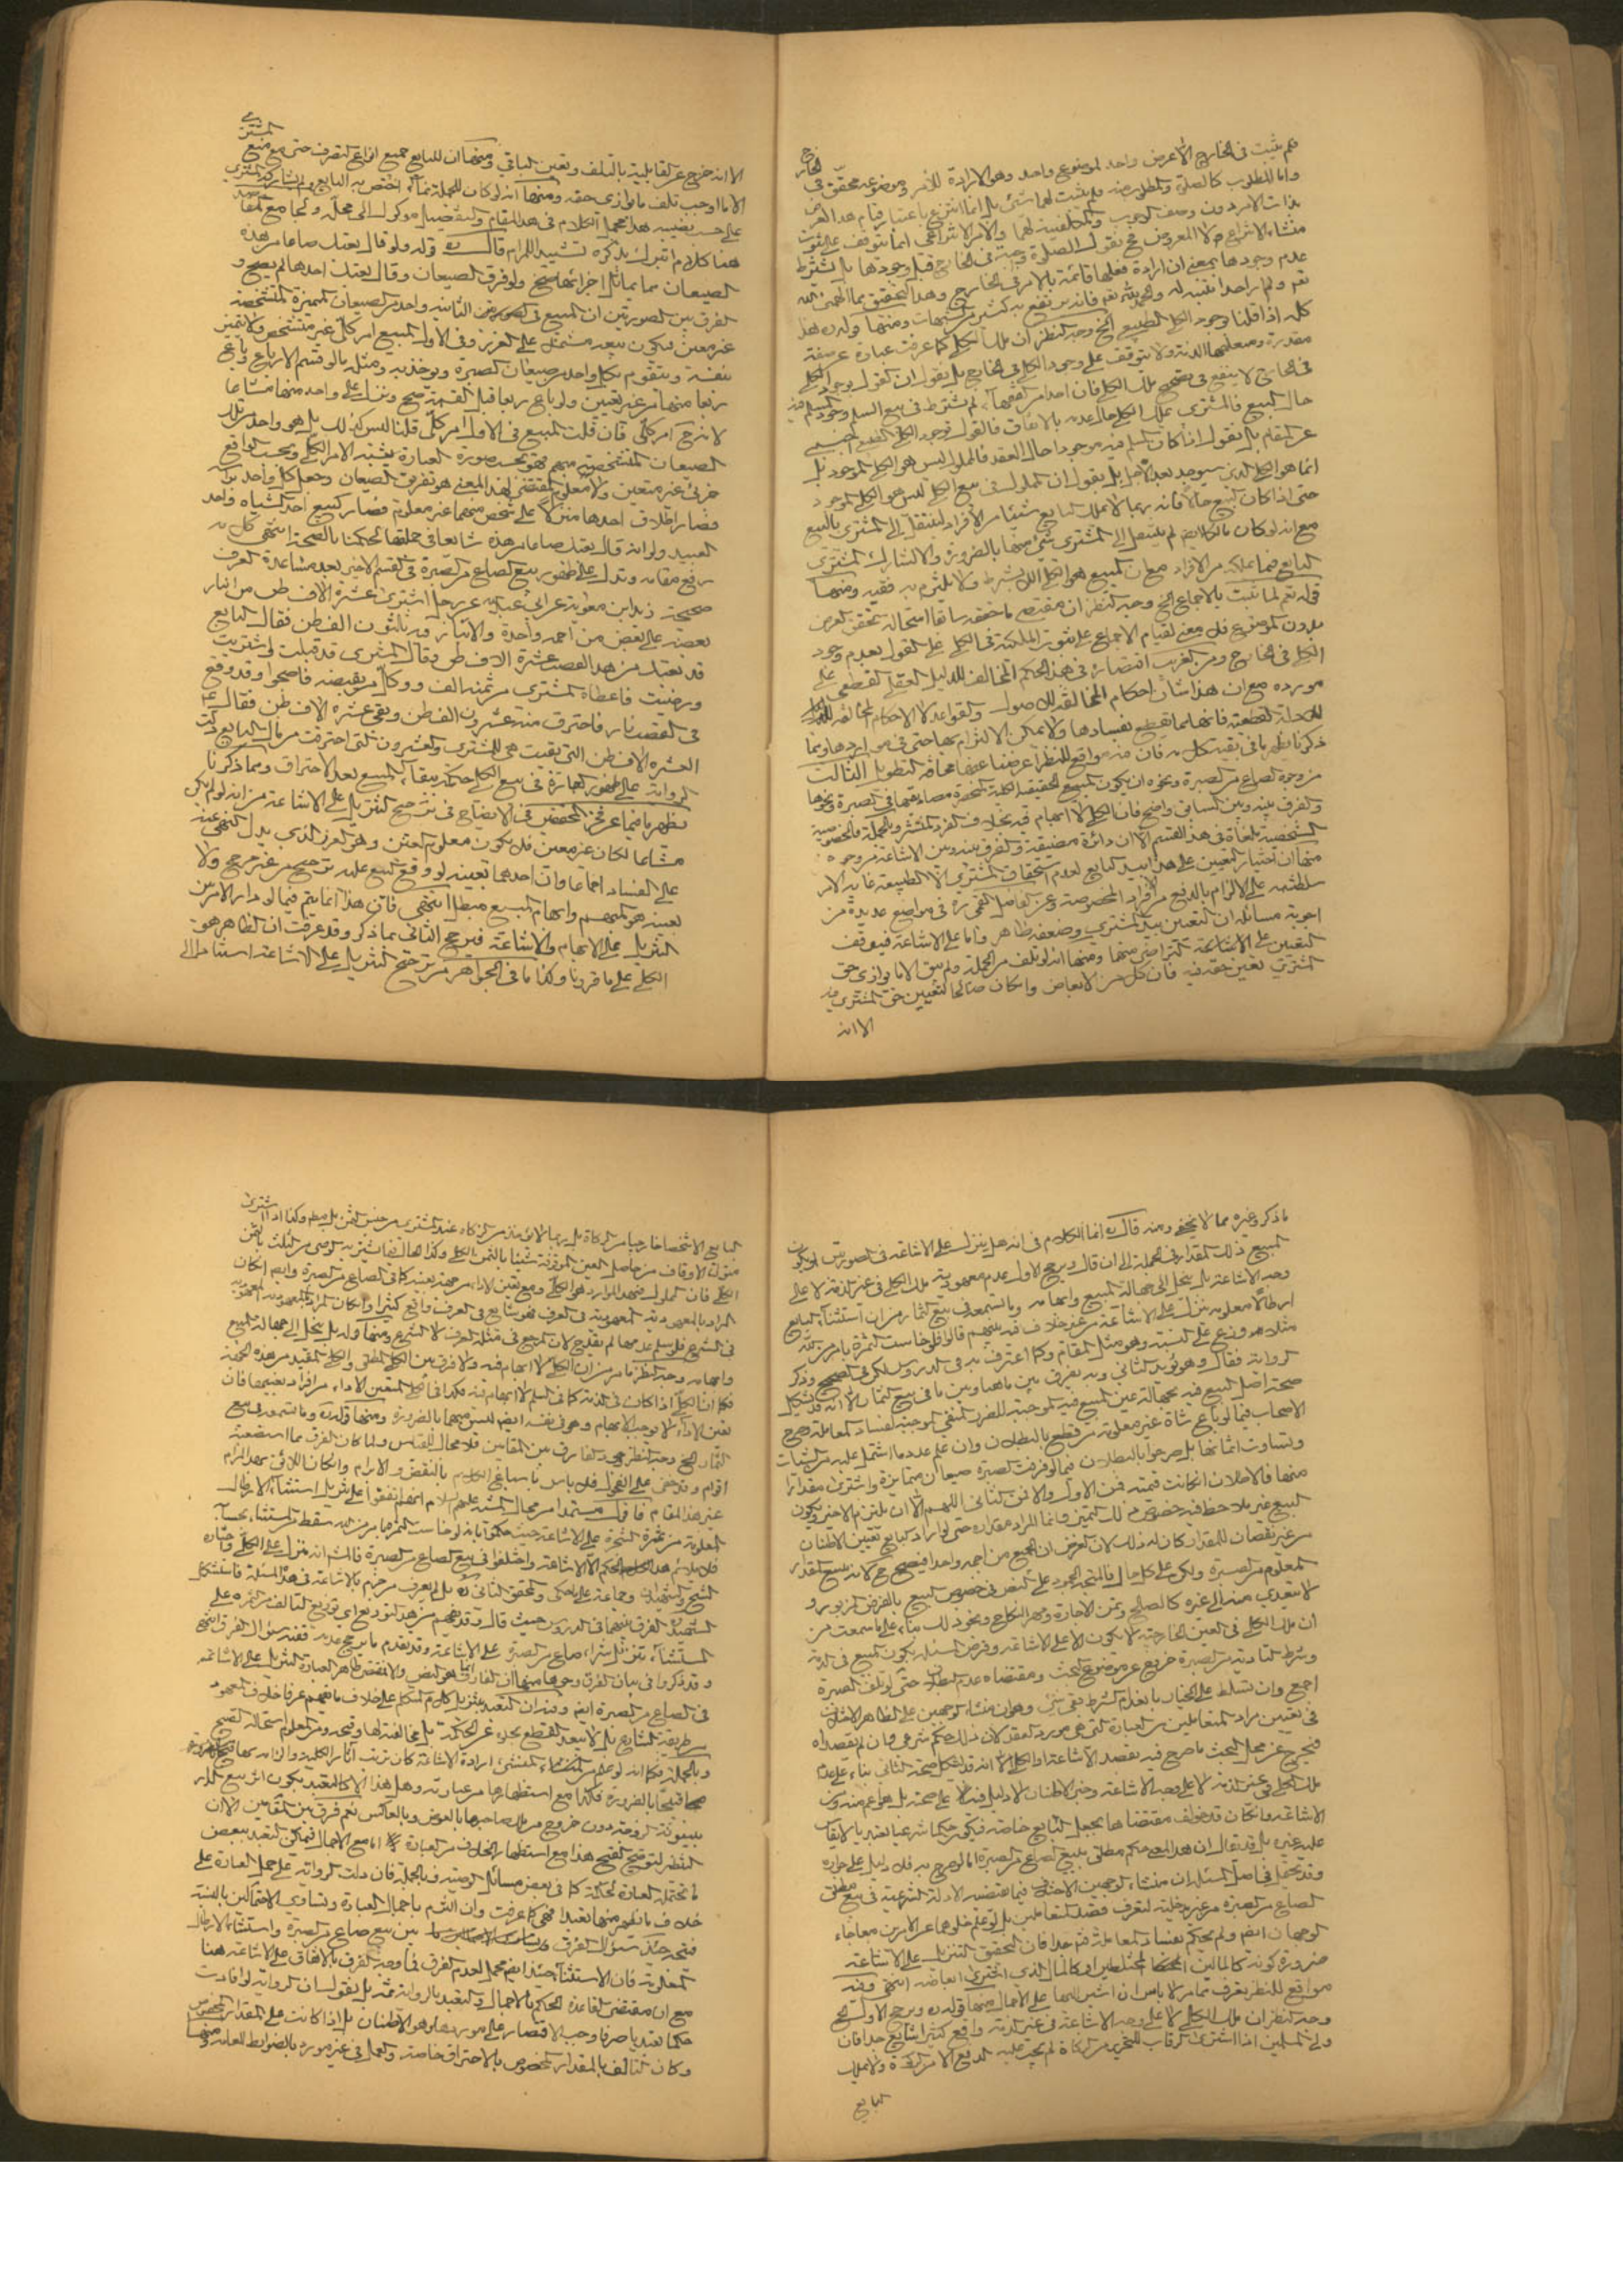 فلم يثبت فى الخارج الا عرض واحد لموضوع واحد وهو الارادة للامر وموضوعه محقق فى الخارج
واما المطلوب كالصلوة والمطلوب منه فلم يثبت لهما شئ بل انما انتزع باعتبار قيام هذا العرض
بذات الامر دون وصف الوجوب والمكلفية لهما والامر الانتزاعى انما يتوقف على ثبوت
منشاء الانتزاع لا المعروض فح نقول الصلوة وجبت فى الخارج قبل وجودها بل بشرط
عدم وجودها بمعنى ان ارادة فعلها قائمة بالامر فى الخارج وهذا التحقيق مما الهمنى الله
نعم ولم ار احدا تنبه له والحمد لله نعم فانه ينفع به كثير من الشبهات ومنها قوله ره هذا
كله اذا قلنا بوجود الكلى الطبيعى الخ وجه النظر ان ملك الكلى كما عرفت عبارة عن صفة
مقدرة ومتعلقها الذمة ولا يتوقف على وجود الكلى فى الخارج بل نقول ان القول بوجود الكلى
فى الخارج لا ينفع فى تصحيح ملك الكلى فان احدا من الفقهاء لم يشترط فى بيع السلم وجود المسلم فيه
حال البيع فالمشترى يملك الكلى حال عدمه بالاتفاق فالقول بوجود الكلى الطبيعى اجنبى
عن المقام بل نقول اذا كان المسلم فيه موجودا حال العقد فالمملوك ليس هو الكلى الموجود بل
انما هو الكلى الذى سيوجد بعد الاجل بل نقول ان المملوك فى بيع الكلى ليس هو الكلى الموجود
حتى اذا كان البيع حالا فانه ربما لا يملك البايع شيئا من الافراد لينتقل الى المشترى بالبيع
مع انه لو كان مالكا ايضا لم ينتقل الى المشترى شئ منها بالضرورة والا لشارك المشترى
البايع فيما يملكه من الافراد مع ان المبيع هو الكلى اللا بشرط ولا يلتزم به فقيه ومنها
قوله نعم لما ثبت بالاجماع الخ وجه النظر ان مقتضى ما حققه سابقا استحالة تحقق العرض
بدون الموضوع فلا معنى لقيام الاجماع على ثبوت الملكية فى الكلى على القول بعدم وجود
الكلى فى الخارج ومن الغريب اقتصاره فى هذا الحكم المخالف للدليل العقلى القطعى على
مورده مع ان هذا شأن احكام المخالفة للاصول والقواعد لا الاحكام المخالفة
للادلة القطعية فانها مما يقطع بفسادها ولا يمكن الالتزام بها حتى فى مواردها وفيما
ذكرنا يظهر ما فى بقية كلامه فان فيه مواقع للنظر اعرضنا عنها مخافة التطويل الثالث
من وجوه الصاع من الصبرة ونحوه ان يكون المبيع الحقيقة الكلية المنحصرة مصاديقها فى الصبرة ونحوها
والفرق بينه وبين السابق واضح فان الكلى لا ابهام فيه بخلاف الفرد المنتشر وبالجملة فالخصوصية
الشخصية ملغاة فى هذا القسم الا ان دائرة مضيقة والفرق بينه وبين الاشاعة من وجوه
منها ان اختيار التعيين على هذا بيد البايع لعدم استحقاق المشترى الا الطبيعة غاية الامر
سلطنته على الالزام بالدفع من الافراد المخصوصة وعن الفاضل القمى ره فى مواضع عديدة من
اجوبة مسائله ان التعيين بيد المشترى وضعفه ظاهر واما على الاشاعة فيتوقف
التعيين على الاشاعة التراضى منهما ومنها انه لو تلف من الجملة ولم يبق الا ما يوازى حق
المشترى تعين حقه فيه فان كل من الابعاض وان كان صالحا لتعيين حق المشترى فيه
الا انه
الا انه خرج عن القابلية بالتلف وتعين الباقى ومنها ان للبايع جميع انواع التصرف حتى مع منع المشترى
الا ما اوجب تلف ما يوازى حقه ومنها انه لو كان للجملة نماء اختص به البايع ولم يشاركه المشترى
على حسب نصيبه هذا مجمل الكلام فى هذا المقام والتفصيل موكول الى محله ولجامع المقاصد
هنا كلام نتبرك بذكره تشييدا للمرام قال ره قوله ولو قال بعتك صاعا من هذه
الصيعان مما يماثل اجزائها صح ولو فرق الصيعان وقال بعتك احدها لم يصح و
الفرق بين الصورتين ان المبيع فى الصورة الثانية واحد من الصيعان المتميزة المتشخصة
غير معين فيكون بيعه مشتملا على الغرر وفى الاول المبيع امر كلى غير متشخص ولا متميز
بنفسه ويتقوم بكل واحد من صيعان الصبرة ويوجد به ومثله ما لو قسم الارباع وباع
ربعا منها من غير تعيين ولو باع ربعا قبل القسمة صح وينزل على واحد منها مشاعا
لانه ح امر كلى فان قلت المبيع فى الاول امر كلى قلنا ليس كذلك بل هو واحد من تلك
الصيعان المتشخصة مبهم فهو بحسب صورة العبارة يشبه الامر الكلى وبحسب الواقع
جزئى غير متعين ولا معلوم والمقتضى لهذا المعنى هو تفريق الصيعان وجعل كل واحد براسه
فصار اطلاق احدها منزلا على شخص منها غير معلوم فصار كبيع احد الشياه واحد
العبيد ولو انه قال بعتك صاعا من هذه شايعا فى جملتها لحكمنا بالصحة انتهى كلامه
رفع مقامه وتدل على ظهور بيع الصاع من الصبرة فى القسم الاخير بعد مشاعدة العرف
صحيحة زيد ابن معوية عن ابى عبد الله عن رجل اشترى عشرة الاف طن من انبار
بعضه على بعض من اجمة واحدة والانبار فيه ثلثون الف طن فقال البايع
قد بعتك من هذا القصب عشرة الاف طن وقال المشترى قد قبلت واشتريت
ورضيت فاعطاه المشترى من ثمنه الف ووكل من يقبضه فاصبحوا وقد وقع
فى القصب نار فاحترق منه عشرون الف طن وبقى عشرة الاف طن فقال ع
العشرة الاف طن التى بقيت هى للمشترى والعشرون التى احترقت من مال البايع ودلت
الرواية على ظهور العبارة فى بيع الكلى حكمه ببقاء المبيع بعد الاحتراق ومما ذكرنا
يظهر ما فيما عن فخر المحققين فى الايضاح فى ترجيح التنزيل على الاشاعة من انه لو لم يكن
مشاعا لكان غير معين فلا يكون معلوم العين وهو الغرر الذى يدل النهى عنه
على الفساد اجماعا ولان احدهما بعينه لو وقع البيع عليه ترجيح من غير مرجح ولا
بعينه هو المبهم وابهام المبيع مبطل انتهى فان هذا انما يتم فيما لو دار الامر بين
التنزيل على الابهام والاشاعة فيرجح الثانى بما ذكره وقد عرفت ان الظاهر هو
الكلى على ما قررنا وكذا ما فى الجواهر من ترجيح التنزيل على الاشاعة استنادا الى
ما ذكر وغيره مما لا يخفى ومنه قال ره انما الكلام فى انه هل ينزل على الاشاعة فى الصورتين ليكون
المبيع ذلك المقدار فى الجملة الى ان قال ويرجح الاول عدم معهودية ملك الكلى فى غير الذمة لا على
وجه الاشاعة بل ينحل الى جهالة المبيع وابهامه وما تسمعه فى بيع الثمار من ان استثناء البايع
ارطالا معلومة ينزل على الاشاعة من غير خلاف فيه بينهم قالوا فلو خاست الثمرة بامر من الله
مثلا هو وزع على النسبة وهو مثل المقام وكما اعترف به فى الدروس لكن فى الصحيح وذكر
الرواية فقال وهو يؤيد الثانى وبه يفرق بين ما هنا وبين ما فى بيع الثمار الا انه قد يشكل
صحة اصل البيع فيه بجهالة عين المبيع فيه الموجبة للغرر المنفى الموجبة لفساد المعاملة وصرح
الاصحاب فيما لو باع شاة غير معلومة من قطيع بالبطلان وان علم عدد ما اشتمل عليه من الشياة
وتساوت اثمانها بل صرحوا بالبطلان فيما لو فرقت الصبرة صيعان متمايزة واشترى مقدارا
منها
البيع غير ملاحظ فيه خصوص ذلك المتميز وانما المراد مقداره حتى لو اراد البايع تعيين الاطنان
من غير نقصان للمقدار كان له ذلك لان الغرض ان الجميع من اجمة واحدة فيصح ح كانه بيع المقدار
المعلوم من الصبرة ولكن على كل حال فالمتجه الجمود على النص فى خصوص البيع بالفرض المزبور و
لا يتعدى منه الى غيره كالصلح وثمن الاجارة ومهر النكاح ونحو ذلك بناء على ما سمعت من
ان ملك الكلى فى العين الخارجية لا يكون الا على الاشاعة وفرض المسئلة بكون المبيع فى الذمة
وشرط التادية من الصبرة خروج عن موضوع البحث ومقتضاه عدم البطلان حتى لو تلف الصبرة
اجمع وان تسلط على الخيار بانعدام الشرط بقى شئ وهو ان منشاء الوجهين على الظاهر الاختلاف
فى تعيين مراد المتعاملين من العبارة التى هى مورد العقد لان ذلك حكم شرعى وان لم يقصداه
فيخرج عن محل البحث ما صرح فيه بقصد الاشاعة او الكلى الا انه قد يشكل صحة الثانى بناء على عدم
ملك الكلى فى غير الذمة الا على وجه الاشاعة وخبر الاطنان لا دليل فيه على صحته بل هو اعم منه ومن
الاشاعة وان كان قد خولف مقتضاها بجعل التالف من البايع خاصة فيكون حكما شرعيا
عليه وغيره بل قد يقال ان هذا الحكم مطلق بيع الصاع من الصبرة اما لو صرح به فلا دليل على جوازه
وقد يحتمل فى اصل المسئلة ان منشاء الوجهين الاختلاف فيما تقتضيه الادلة الشرعية فى بيع مطلق
الصاع من الصبرة من غير مدخلية لتعرف قصد المتعاملين بل لو علم خلوهما عن الامرين معا جاء
الوجهان ايضا ولم يحكم بفساد المعاملة فتامل جدا فان التحقيق التنزيل على الاشاعة
ضرورة كونه كالمالين المختلطين او كالمال الذى اشترى ابعاضه انتهى وفيه
مواقع للنظر يعرف بتمامه لا باس ان اشير اليها على الاجمال منها قوله ره ويرجح الاول الخ
وجه النظر ان ملك الكلى لا على وجه الاشاعة فى غير الذمة واقع كثير شايع جدا فان
ولى المسلمين اذا اشترى الرقاب للتحرير من الزكاة لم يجب عليه الدفع الا من الزكاة ولا يملك
البايع
البايع الا شخصا خارجيا من الزكاة
متولى الاوقاف من حاصل العين الموقوفة شيئا بالثمن الكلى وكذا الحال فيما يشتريه الوصى من الثلث بالثمن
الكلى فان المملوك فى هذه الموارد هو الكلى ومع تعين الاداء من جهة بعينه كما فى الصاع من الصبرة وايضا ان كان
المراد بالمعهودية المعهودية فى العرف فهو شايع فى العرف واقع كثيرا وان كان المراد المعهودية
فى الشرع فلو سلم عدمها لم يقدح لان المرجع فى مثله العرف لا الشرع ومنها قوله بل ينحل الى جهالة المبيع
وابهامه وجه النظر ما مر من ان الكلى لا ابهام فيه ولا فرق بين الكلى المطلق والكلى المقيد من هذه الجهة
فكما ان الكلى اذا كان فى الذمة كما فى السلم لا ابهام فيه فكذا فى الكلى المتعين الاداء من افراد بعينها فان
تعين الاداء لا يوجب الابهام وهو فى نفسه ايضا ليس مبهما بالضرورة ومنها قوله ره وما تسمعه فى بيع
الثمار الخ وجه النظر وجود الفارق بين المقامين فلا مجال للقياس ولما كان الفرق مما استصعبه
اقوام وقد خفى على الفحول فلا باس باشباع الكلام بالنقض والابرام وان كان اللائق بهذا المرام
غير هذا المقام فاقول مستمدا من بحار ائمته عليهم السلام انهم اتفقوا على تنزيل استثناء الارطال
المعلومة من ثمرة الشجرة على الاشاعة حيث حكموا بانه لو خاست الثمرة بامر من الله سقط المستثنى بحسابه
فلا يلائم هذا الحكم الا الاشاعة واختلفوا فى بيع الصاع من الصبرة فالمشهور انه منزل على الكلى واختاره
الشيخ والشهيدان وجماعة على ما حكى والمحقق الثانى ره بل لم يعرف من جزم بالاشاعة فى هذه المسئلة فاستشكل
الشهيد ره الفرق بينهما فى الدروس حيث قال وقد يفهم من هذا التوزيع اى توزيع التالف من الثمرة على
المستثناة تنزيل شراء صاع من الصبرة على الاشاعة وقد تقدم ما يرجح عدمه ففيه سؤال الفرق انتهى
وقد ذكروا فى بيان الفرق وجوها منها ان الفارق انما هو النص والا فمقتضى ظاهر العبارة التنزيل على الاشاعة
فى الصاع من الصبرة ايضا وفيه ان التعبد بتنزيل كلام المتكلم على خلاف ما يفهم عرفا خلاف المعهود
من طريقة الشارع بل لا يبعد القطع بعدمه
وبالجملة فكما انه لو علم من
قبيحا بالضرورة فكذا مع استظهارها من عبارته وهل هذا الا
بيبنونة الزوجة دون خروج من ملك صاحبها بالعوض وبالعكس نعم فرق بين المقامين الا ان
النظر لتوضيح القبيح هذا مع استظهار الخلاف من العبارة واما مع الاجمال فيمكن التعبد ببعض
ما تحتمله العبارة لحكمة كما فى بعض مسائل الوصية وبالجملة فان دلت الرواية على حمل العبارة على
خلاف ما يظهر منها تعبدا فهى كما عرفت وان التزم باجمال العبارة وتساوى الاحتمالين بالنسبة
فيتجه حينئذ سؤال الفرق بين بيع صاع من الصبرة واستثناء الارطال
المعلومة فان الاستثناء حينئذ ايضا مجمل لعدم الفرق فما وجه الفرق بالاتفاق على الاشاعة هنا
مع ان مقتضى القاعدة الحكم بالاجمال والتعبد بالرواية ثمة بل نقول ان الرواية لو افادت
حكما تعبديا صرفا وجب الاقتصار على موردها وهو الاطنان بل اذا كانت على المقدار المخصوص
وكان التالف بالمقدار المخصوص بالاحتراق خاصة والعمل فى غير مورده بالضوابط العامة ومنها